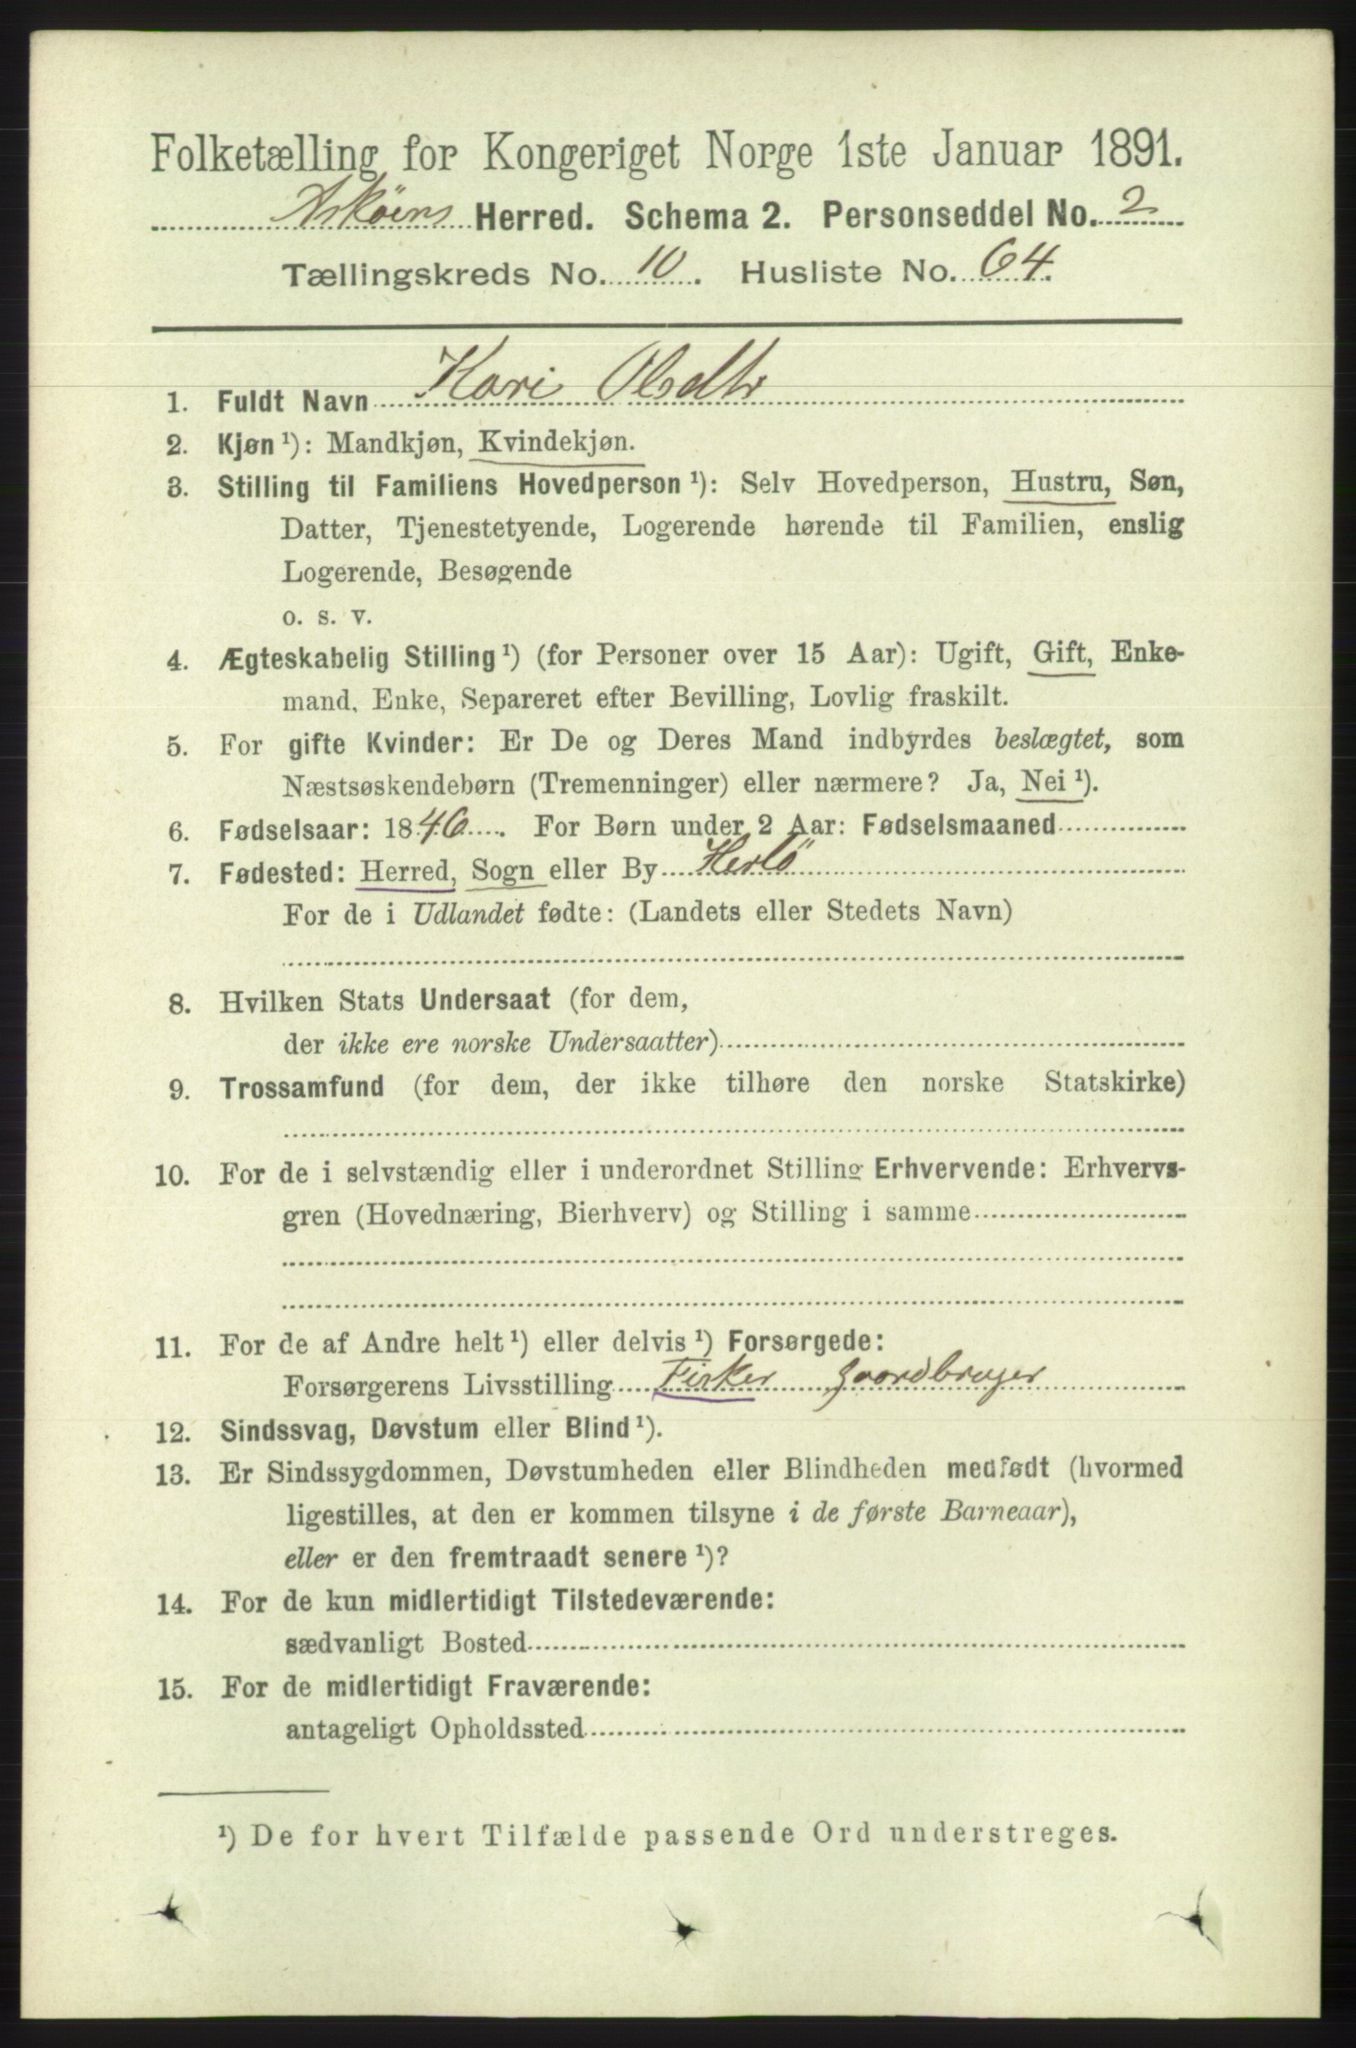 Folketælling for Kongeriget Norge 1ste Januar 1891.
Askøens Herred. Schema 2. Personseddel No. 2
Tællingskreds No. 10. Husliste No. 64.
1. Fuldt Navn Kari Olsdtr
2. Kjøn ¹): Mandkjøn, Kvindekjøn.
3. Stilling til Familiens Hovedperson ¹): Selv Hovedperson, Hustru, Søn,
Datter, Tjenestetyende, Logerende hørende til Familien, enslig
Logerende, Besøgende
o. s. v.
4. Ægteskabelig Stilling ¹) (for Personer over 15 Aar): Ugift, Gift, Enke-
mand, Enke, Separeret efter Bevilling, Lovlig fraskilt.
5. For gifte Kvinder: Er De og Deres Mand indbyrdes beslægtet, som
Næstsøskendebørn (Tremenninger) eller nærmere? Ja, Nei ¹).
6. Fødselsaar: 1846. For Børn under 2 Aar: Fødselsmaaned
7. Fødested: Herred, Sogn eller By Herlö
For de i Udlandet fødte: (Landets eller Stedets Navn)
8. Hvilken Stats Undersaat (for dem,
der ikke ere norske Undersaatter)
9. Trossamfund (for dem, der ikke tilhøre den norske Statskirke)
10. For de i selvstændig eller i underordnet Stilling Erhvervende: Erhvervs-
gren (Hovednæring, Bierhverv) og Stilling i samme
11. For de af Andre helt ¹) eller delvis ¹) Forsørgede:
Forsørgerens Livsstilling Fisker gaardbruger
12. Sindssvag, Døvstum eller Blind ¹).
13. Er Sindssygdommen, Døvstumheden eller Blindheden medfødt (hvormed
ligestilles, at den er kommen tilsyne i de første Barneaar),
eller er den fremtraadt senere ¹)?
14. For de kun midlertidigt Tilstedeværende:
sædvanligt Bosted
15. For de midlertidigt Fraværende:
antageligt Opholdssted
¹) De for hvert Tilfælde passende Ord understreges.